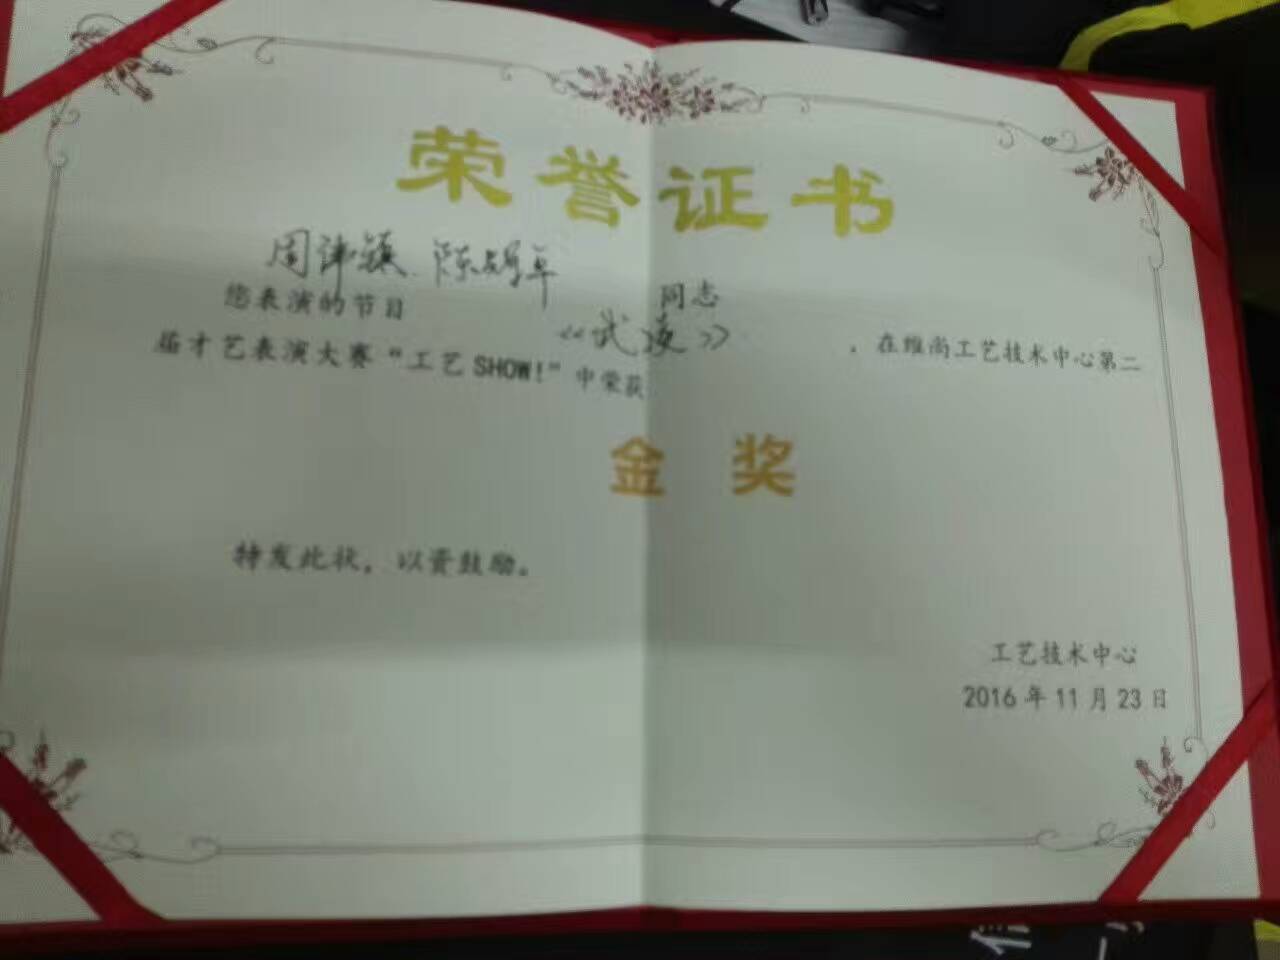 荣誉证书
周沛镇 陈
同志
您表演的节目《武凌》，在维尚工艺技术中心第二
届才艺表演大赛“工艺SHOW！”中荣获
金奖
特发此状，以资鼓励。
工艺技术中心
2016年11月23日